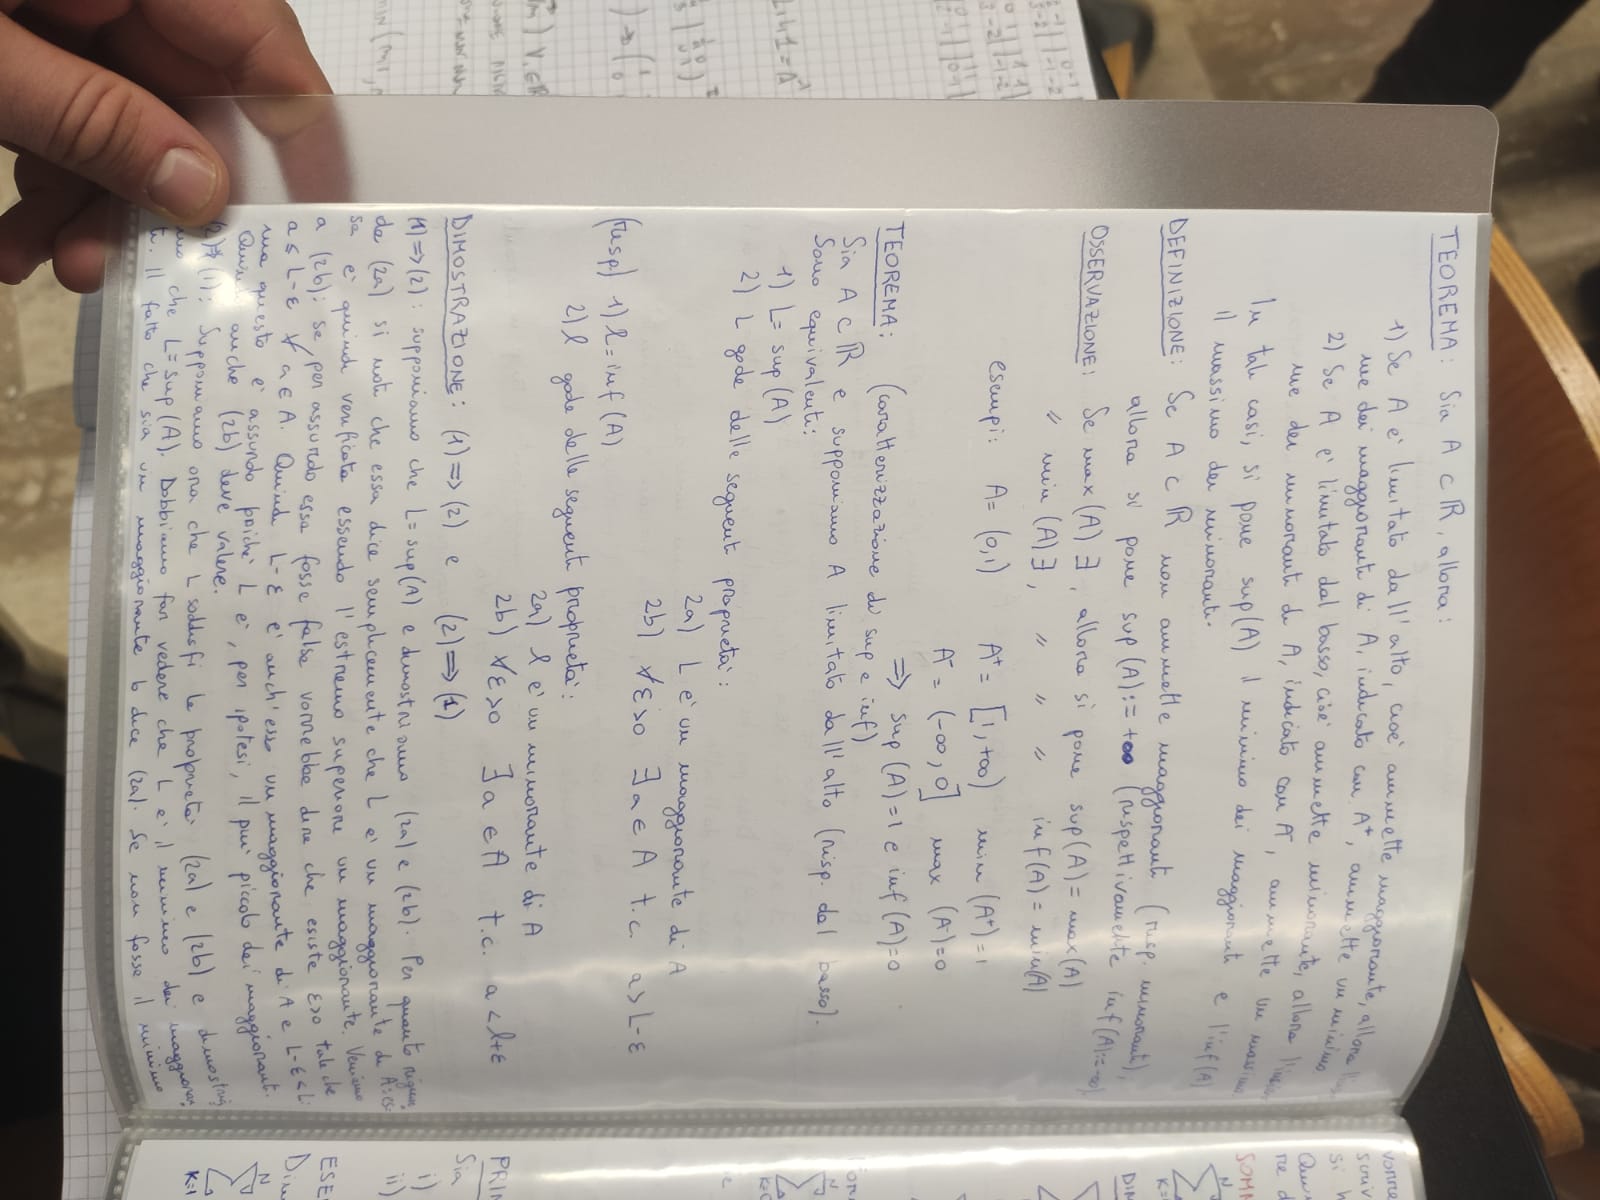 TEOREMA: Sia A ⊂ ℝ, allora:
1) Se A è limitato dall'alto, cioè ammette maggiorante, allora
me dei maggioranti di A, indicato con A⁺, ammette un minimo
2) Se A è limitato dal basso, cioè ammette minorante, allora
me dei minoranti di A, indicato con A⁻, ammette un massimo
In tali casi, si pone sup(A) il minimo dei maggioranti e l'inf(A)
il massimo dei minoranti.
DEFINIZIONE: Se A ⊂ ℝ non ammette maggioranti (risp. minoranti),
allora si pone sup(A):=+∞ (rispettivamente inf(A):=-∞)
OSSERVAZIONE: Se max(A) ∃, allora si pone sup(A)=max(A)
" min(A) ∃, " " " inf(A)=min(A)
esempi: A=(0,1) A⁺=[1,+∞) min(A⁺)=1
A⁻=(-∞,0] max(A⁻)=0
⇒ sup(A)=1 e inf(A)=0
TEOREMA: (caratterizzazione di sup e inf)
Sia A ⊂ ℝ e supponiamo A limitato dall'alto (risp. dal basso).
Sono equivalenti:
1) L=sup(A)
2) L gode delle seguenti proprietà:
2a) L è un maggiorante di A
2b) ∀ε>0 ∃a∈A t.c. a>L-ε
(risp) 1) l=inf(A)
2) l gode delle seguenti proprietà:
2a) l è un minorante di A
2b) ∀ε>0 ∃a∈A t.c. a<l+ε
DIMOSTRAZIONE: (1)⇒(2) e (2)⇒(1)
(1)⇒(2): supponiamo che L=sup(A) e dimostriamo (2a) e (2b). Per quanto
da (2a) si noti che essa dice semplicemente che L è un maggiorante di A:
sa è quindi verificata essendo l'estremo superiore un maggiorante. Veniamo
a (2b): se per assurdo essa fosse falsa vorrebbe dire che esiste ε>0 tale che
a ≤ L-ε ∀ a∈A. Quindi L-ε è anch'esso un maggiorante di A e L-ε<L:
ma questo è assurdo poiché L è, per ipotesi, il più piccolo dei maggioranti.
Quindi anche (2b) deve valere.
(2)⇒(1): Supponiamo ora che L soddisfi le proprietà (2a) e (2b) e dimostria
mo che L=sup(A). Dobbiamo far vedere che L è il minimo dei maggioran
ti. Il fatto che sia un maggiorante lo dice (2a). Se non fosse il minimo